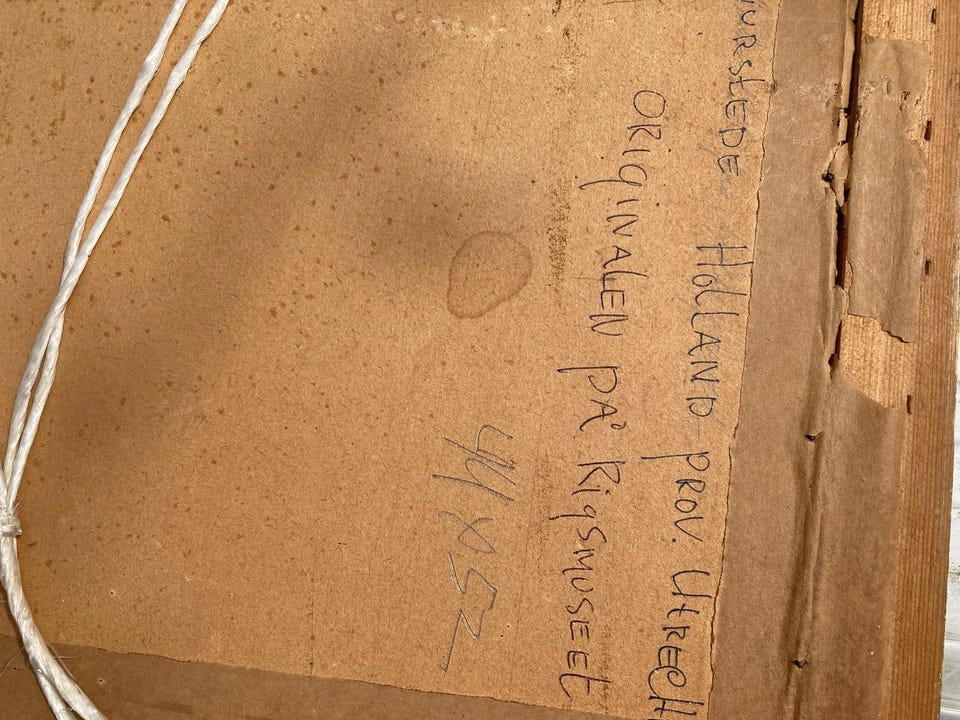 URSTEDE HOLLAND PROV. UTRECH
ORIGINALEN PÅ RIGSMUSEET
44 X 52